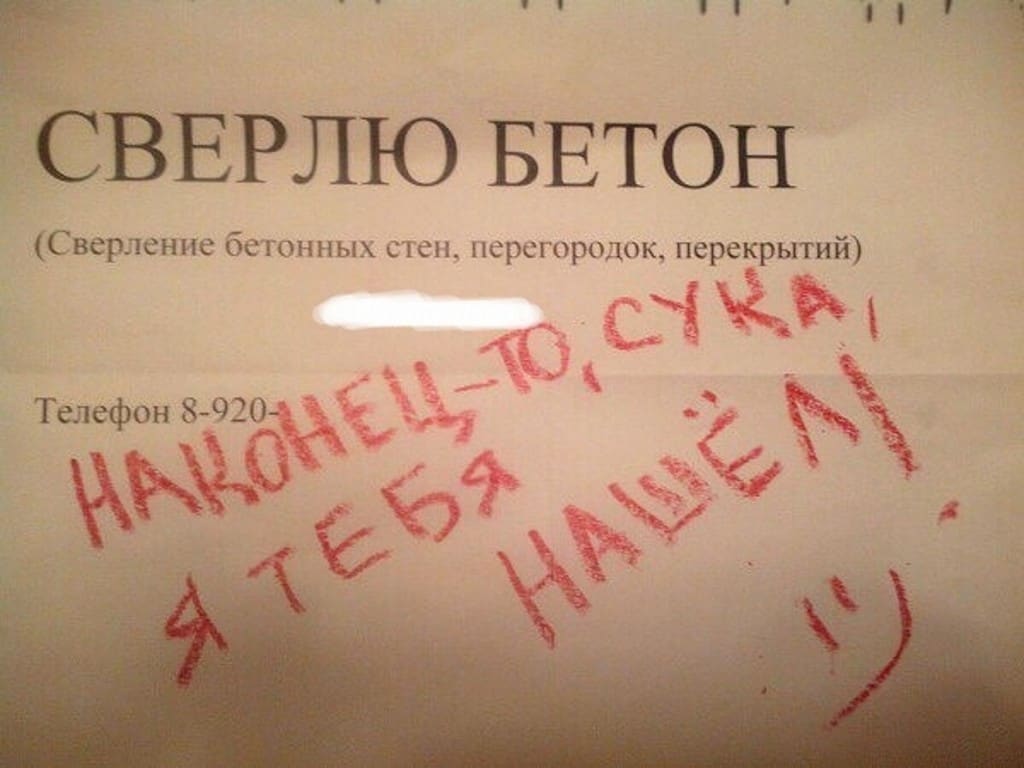 СВЕРЛЮ БЕТОН
(Сверление бетонных стен, перегородок, перекрытий)
Телефон 8-920-
НАКОНЕЦ-ТО, СУКА,
Я ТЕБЯ НАШЁЛ!